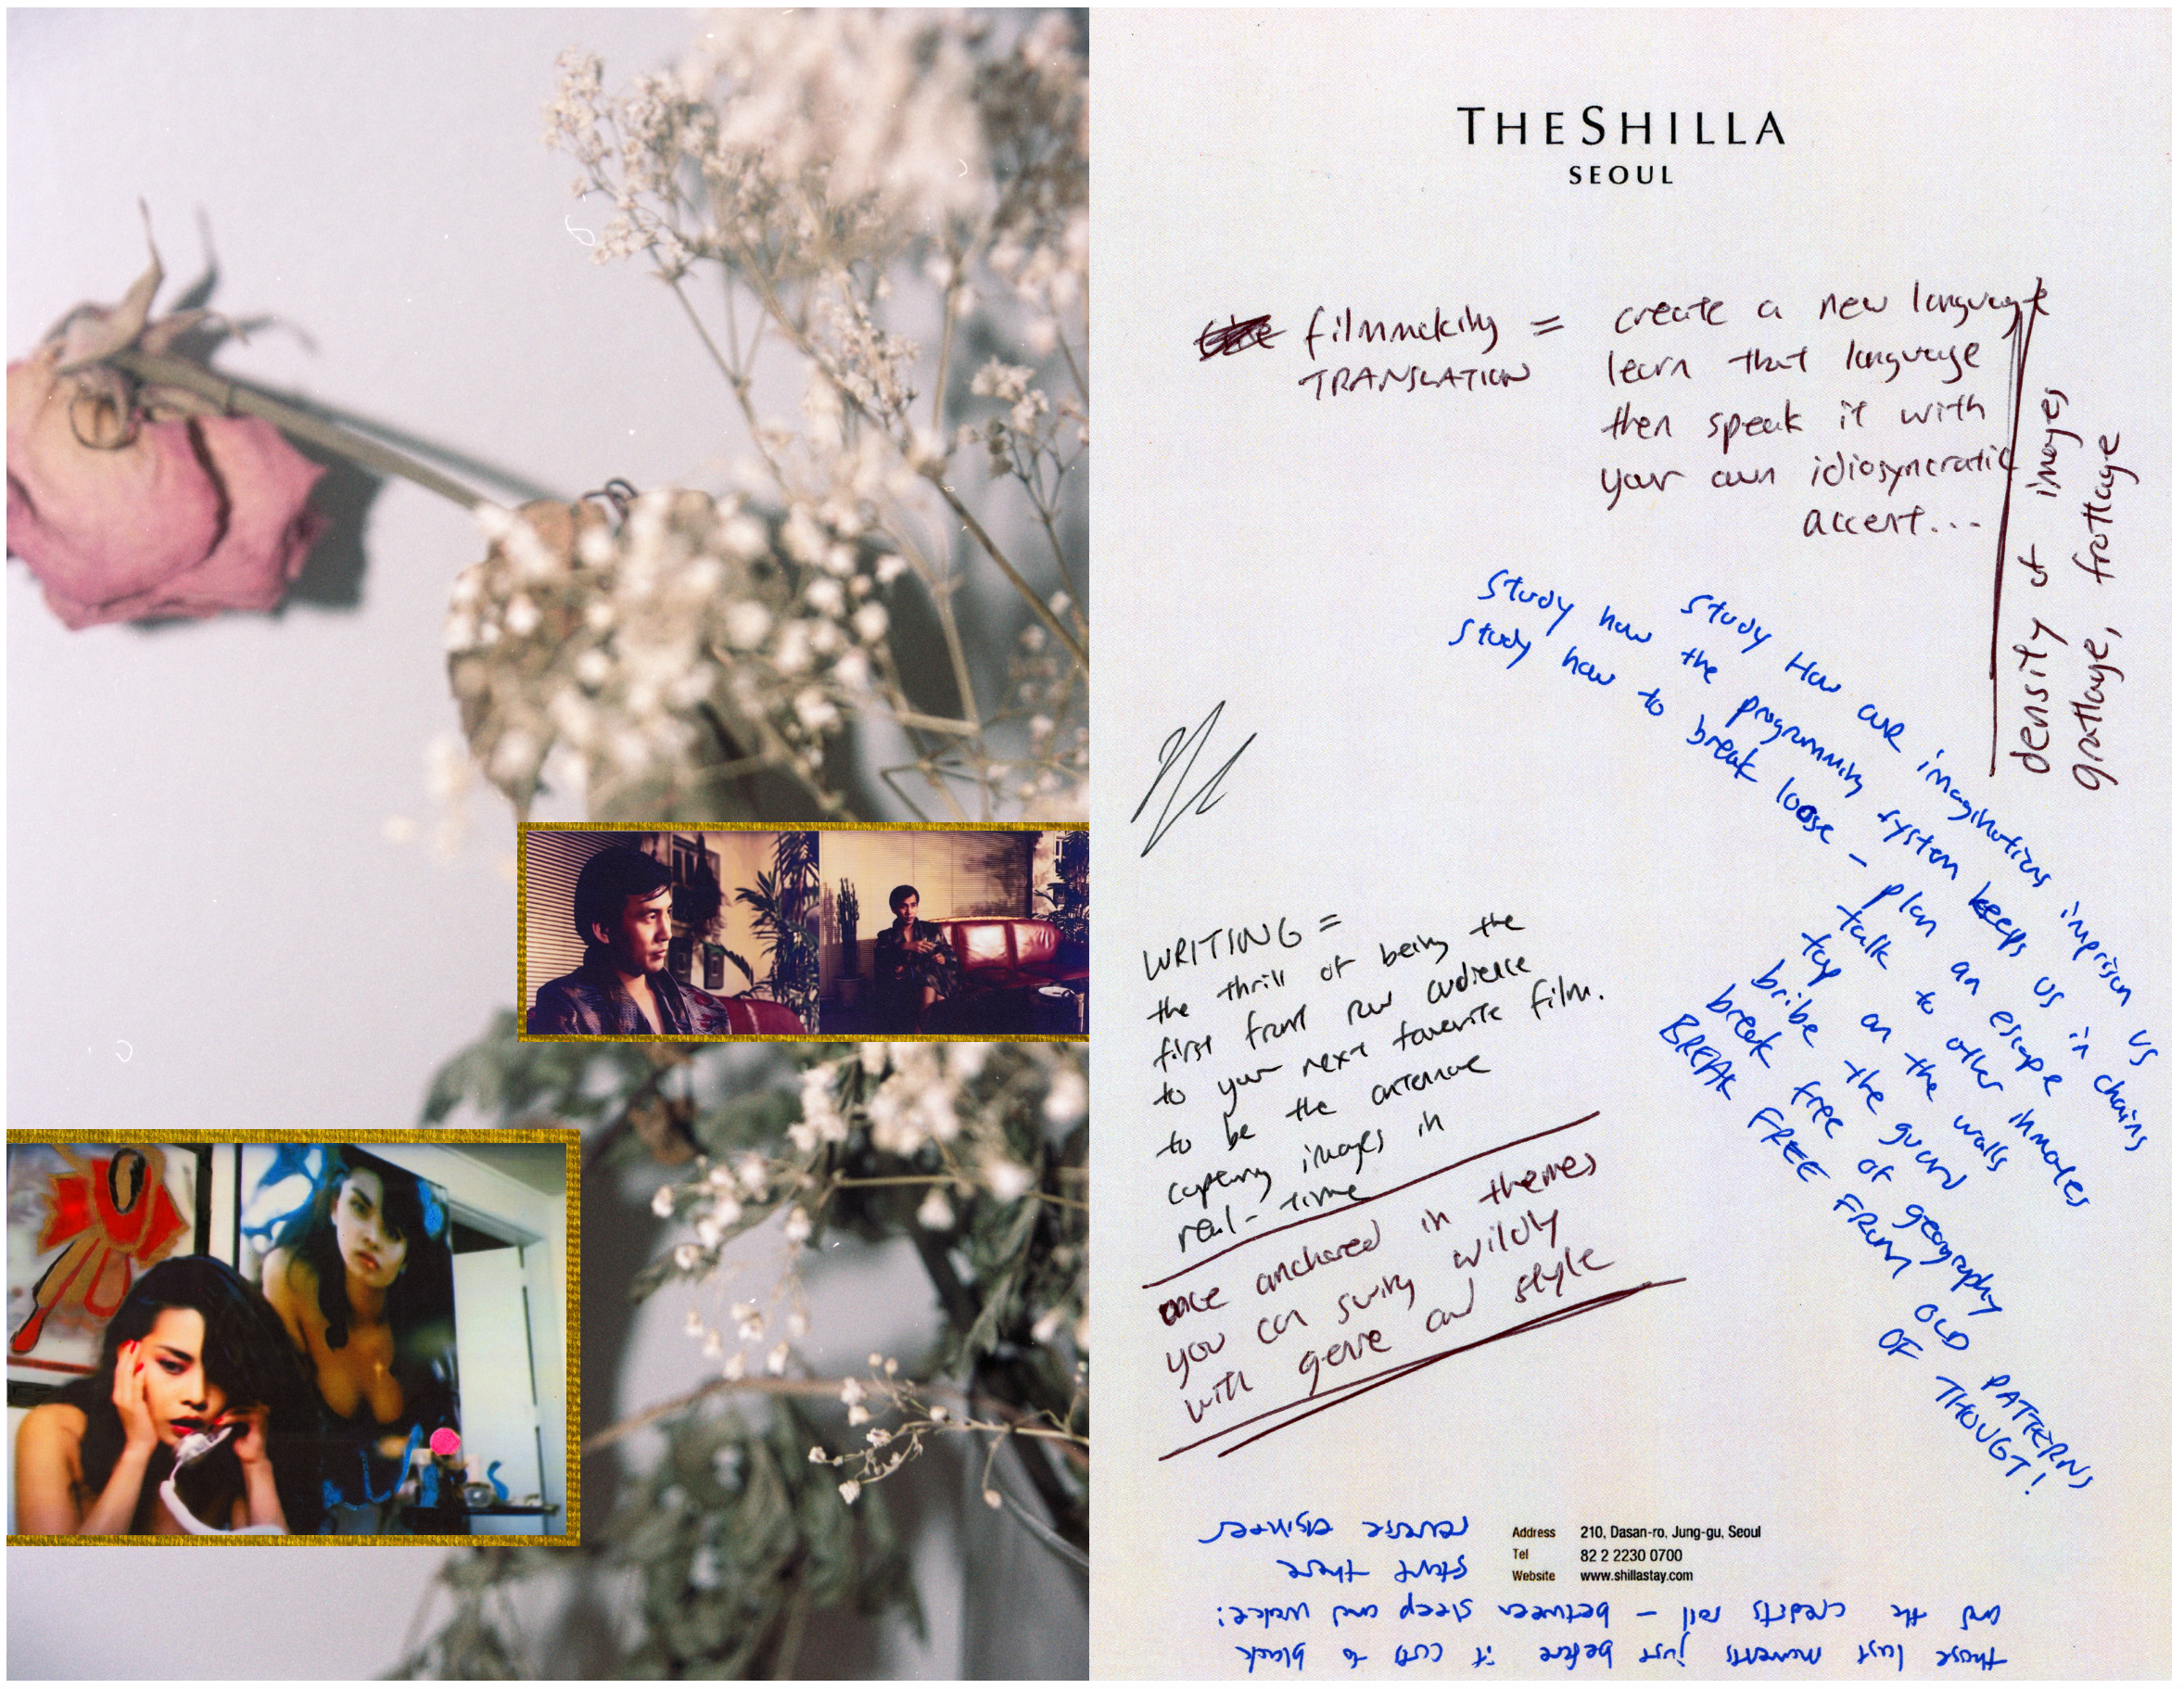 THE SHILLA
SEOUL
filmmaking = create a new language
TRANSLATION learn that language
then speak it with
your own idiosyncratic
accent...
density of images
grattage, frottage
Study How our imaginations imprison us
Study how the programming system keeps us in chains
Study how to break loose – plan an escape
talk to other inmates
tap on the walls
bribe the guard
break free of geography
BREAK FREE FROM OLD PATTERNS
OF THOUGT!
WRITING =
the thrill of being the
first front row audience
to your next favorite film.
to be the antennae
capturing images in
real-time
once anchored in themes
you can swing wildly
with genre and style
Address 210, Dasan-ro, Jung-gu, Seoul
Tel 82 2 2230 0700
Website www.shillastay.com
those last moments just before it cuts to black
and the credits roll – between sleep and wake:
start there
reverse engineer